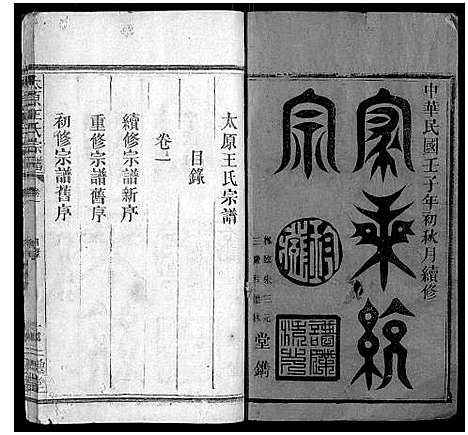 中華民國壬子年初秋月續修
家乘統
宗
堂鐫
太原王氏宗譜
目錄
卷一
續修宗譜新序
重修宗譜舊序
初修宗譜舊序
太原王氏宗譜